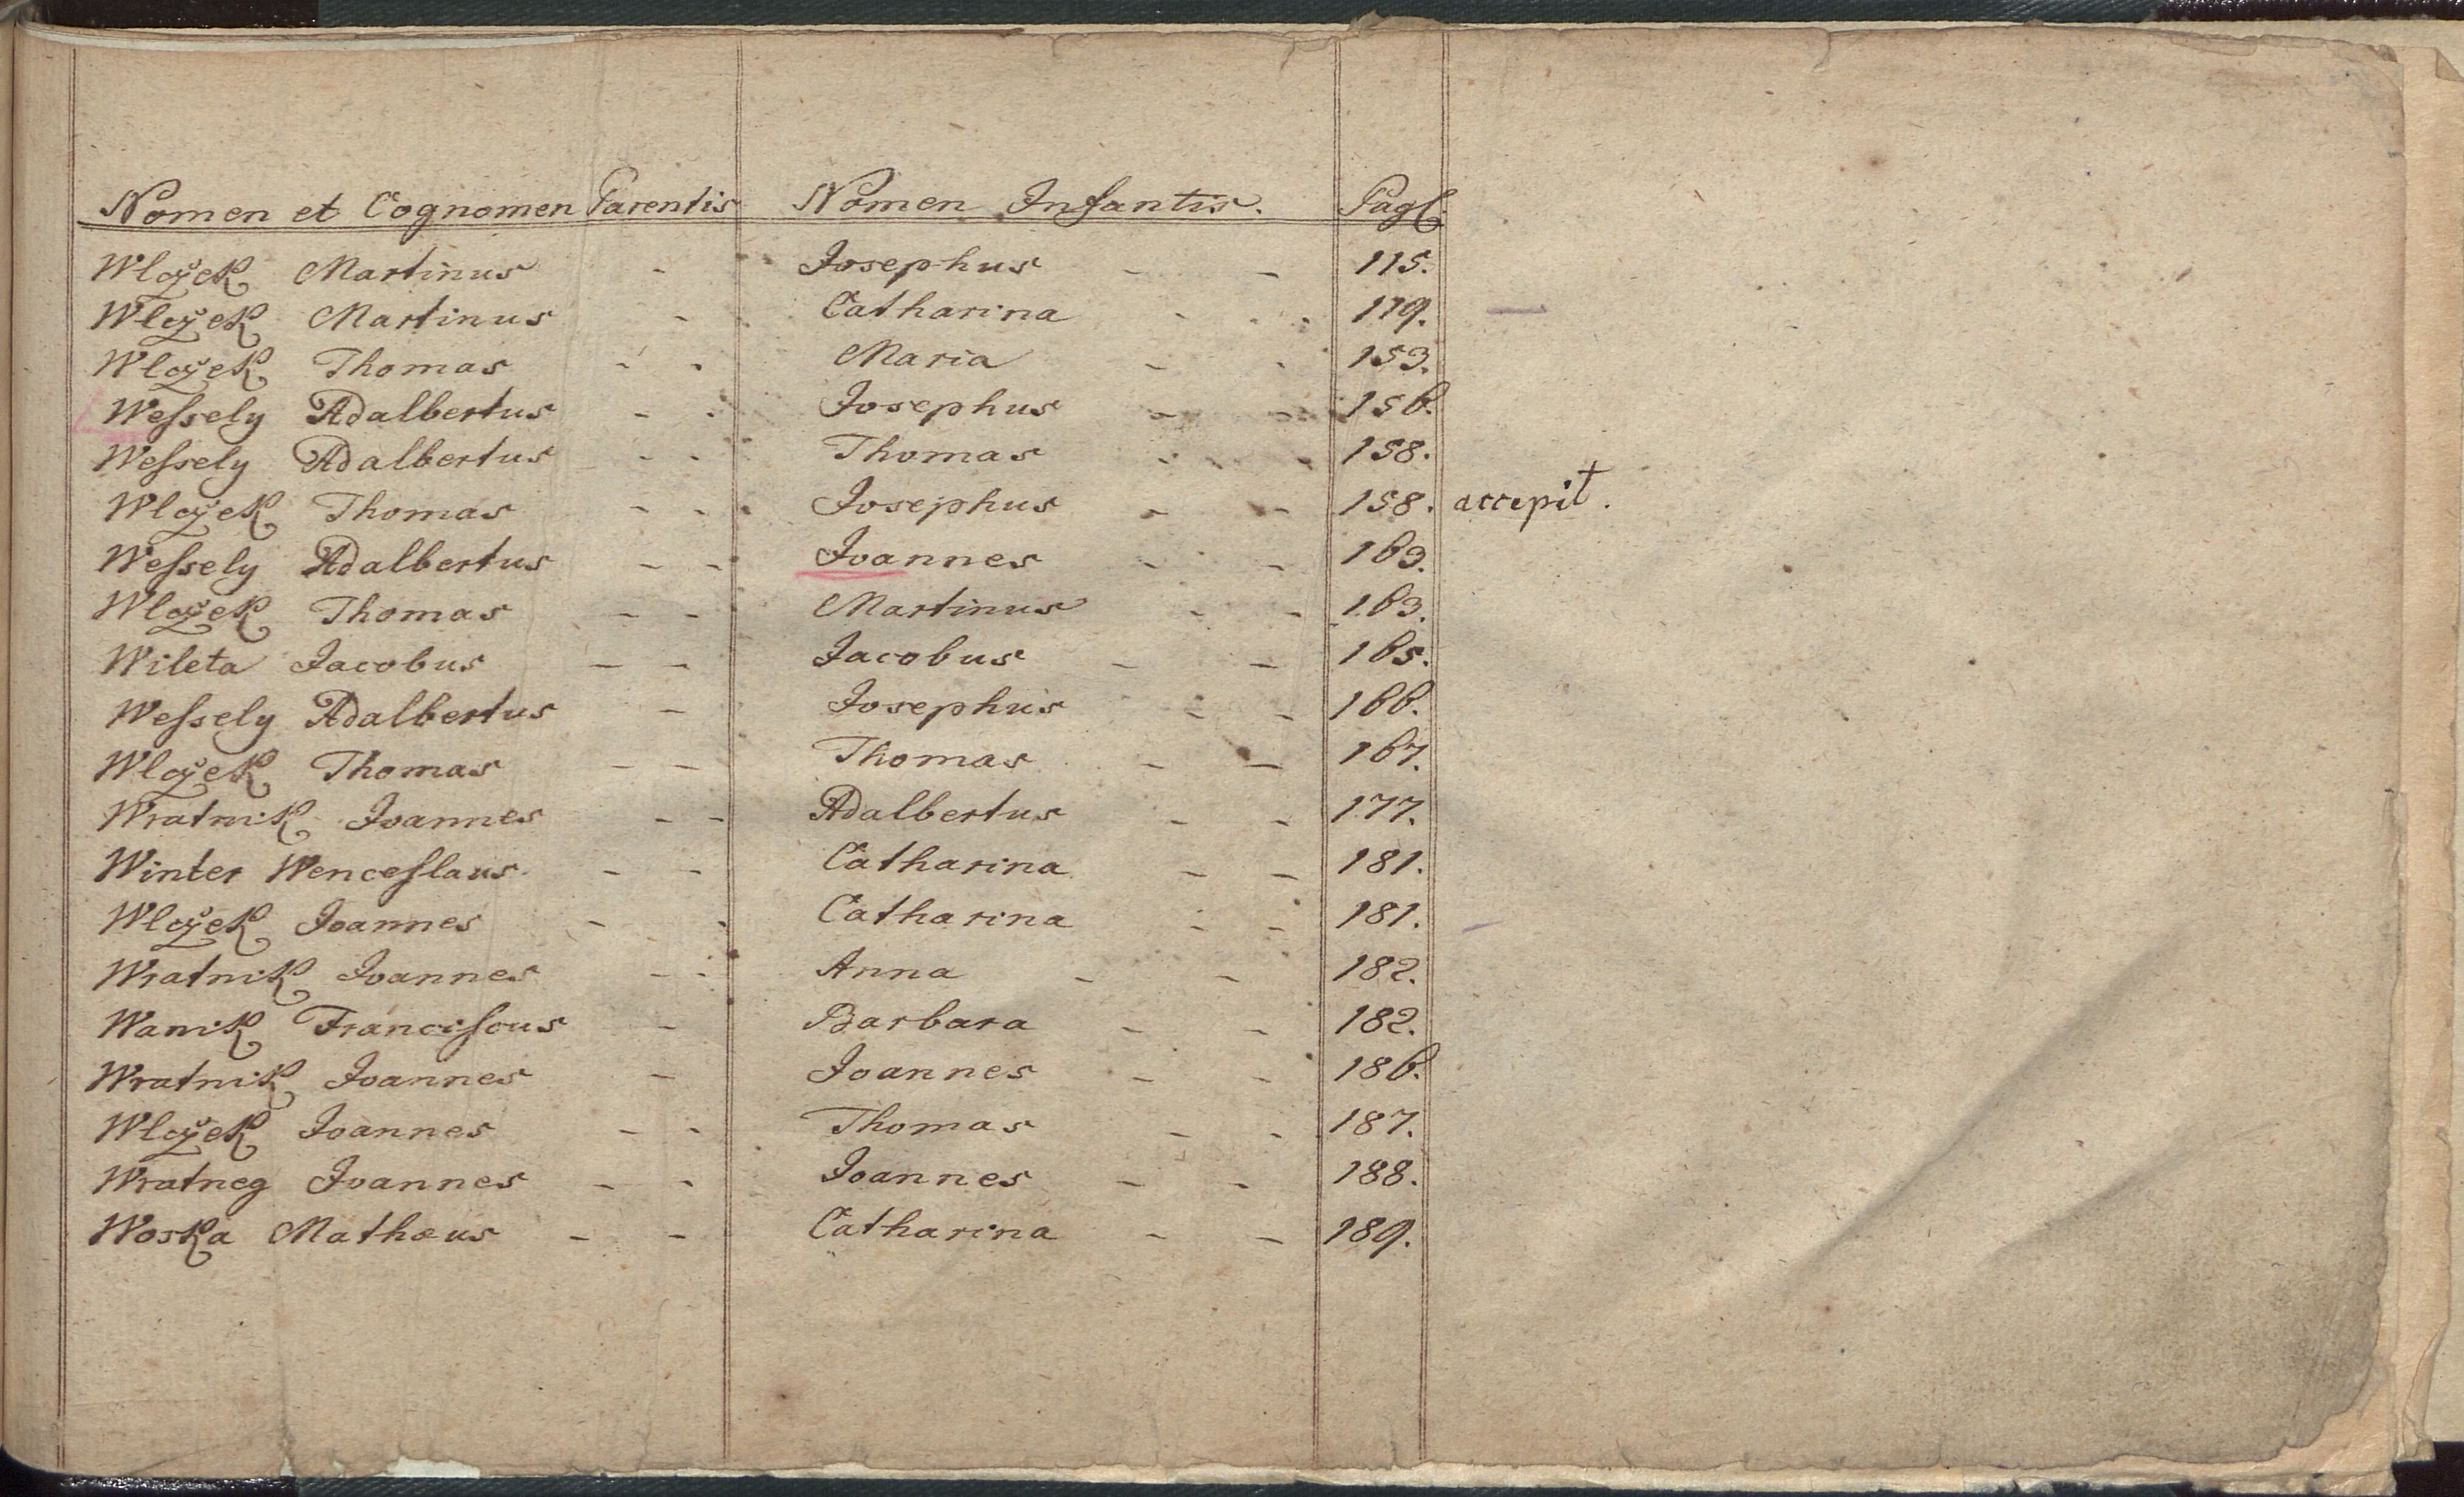 Nomen et Cognomen Parentis Nomen Infantis. Pag:
Wlcżek Martinus - - Josephus - - 115.
Wlcżek Martinus - - Catharina - - 119.
Wlcżek Thomas - - Maria - - 153.
Weſsely Adalbertus - - Josephus - - 156.
Weſsely Adalbertus - - Thomas - - 158.
Wlcżek Thomas - - Josephus - - 158. accepit.
Weſsely Adalbertus - - Joannes - - 163.
Wlcżek Thomas - - Martinus - - 163.
Wileta Jacobus - - Jacobus - - 165.
Weſsely Adalbertus - Josephus - - 166.
Wlcżek Thomas - - Thomas - - 167.
Wratnik Joannes - - Adalbertus - - 177.
Winter Wenceſlaus - - Catharina - - 181.
Wlcżek Joannes - - Catharina - - 181.
Wratnik Joannes - - Anna - - 182.
Wanik Franciſcus - Barbara - - 182.
Wratnik Joannes - Joannes - - 186.
Wlcżek Joannes - - Thomas - - 187.
Wratneg Joannes - - Joannes - - 188.
Woska Mathæus - - Catharina - - 189.